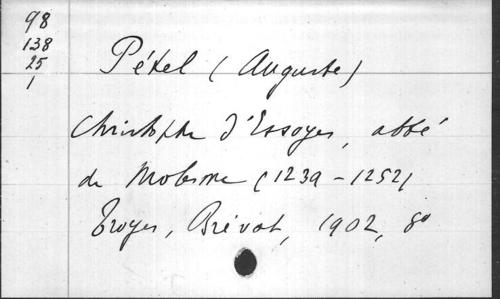 98
138
25
1
Pétel (Auguste)
Christophe d'Essoyes, abbé
de Molesme (1239-1252)
Troyes, Brévot, 1902, 8º